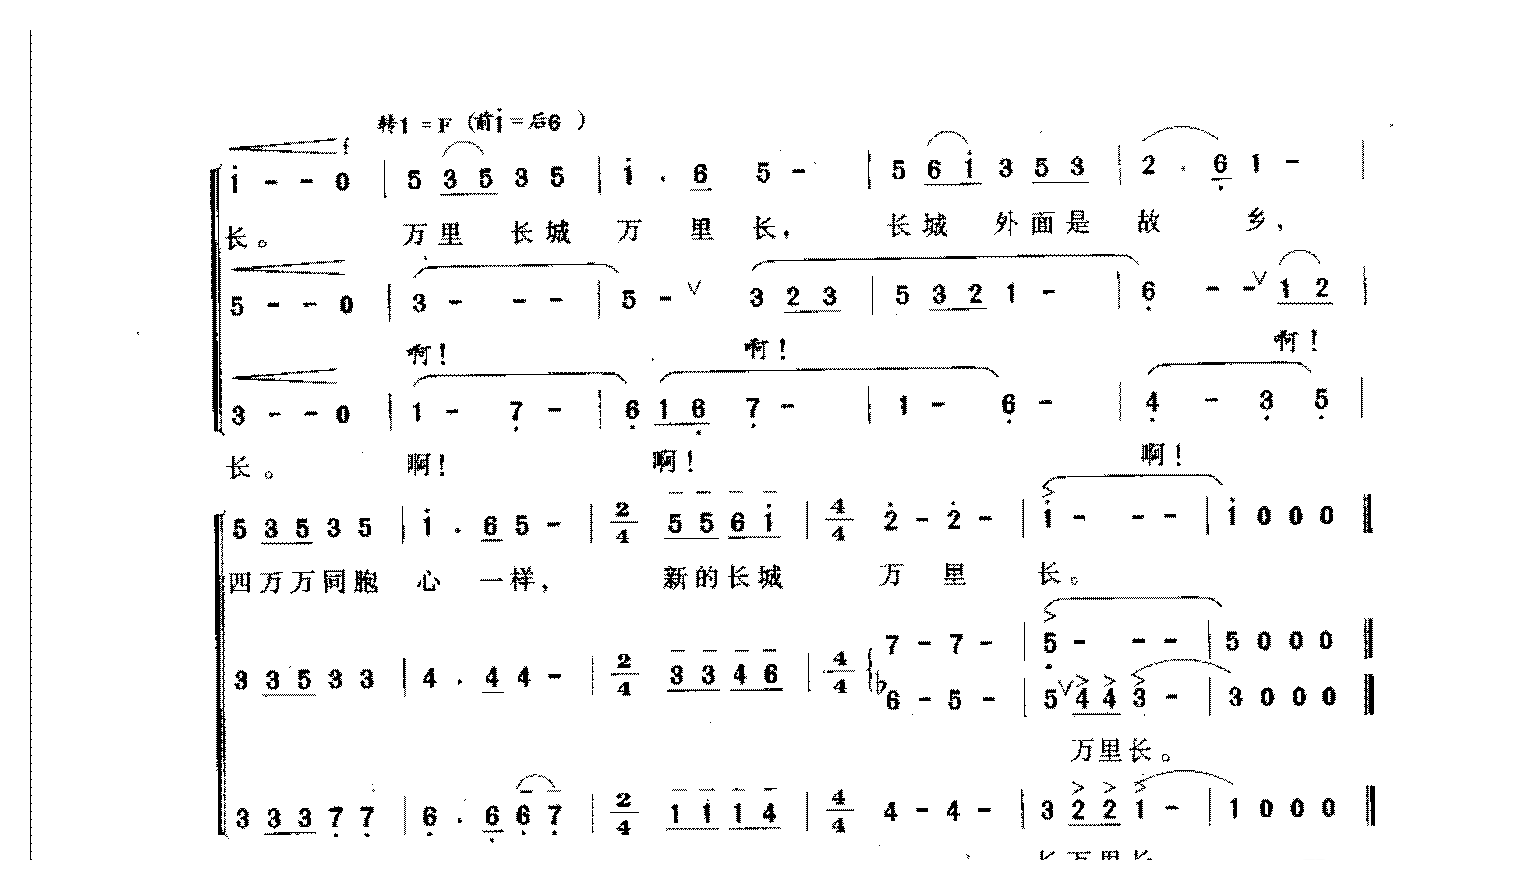 转1=F (前i=后6)
f
i - - 0 | 5 3 5 3 5 | i . 6 5 - | 5 6 i 3 5 3 | 2 . 6 1 - |
长。 万里 长城 万 里 长， 长城 外面是 故 乡，
5 - - 0 | 3 - - - | 5 - V 3 2 3 | 5 3 2 1 - | 6 - - V 1 2 |
啊！ 啊！ 啊！
3 - - 0 | 1 - 7 - | 6 1 6 7 - | 1 - 6 - | 4 - 3 5 |
长。 啊！ 啊！ 啊！
5 3 5 3 5 | i . 6 5 - | 2/4 5 5 6 i | 4/4 2 - 2 - | i - - - | i 0 0 0 ‖
四万万同胞 心 一样， 新的长城 万 里 长。
7 - 7 - | 5 - - - | 5 0 0 0 ‖
3 3 5 3 3 | 4 . 4 4 - | 2/4 3 3 4 6 | 4/4
♭6 - 5 - | 5 V 4 4 3 - | 3 0 0 0 ‖
万里长。
3 3 3 7 7 | 6 . 6 6 7 | 2/4 1 1 1 4 | 4/4 4 - 4 - | 3 2 2 1 - | 1 0 0 0 ‖
长万里长